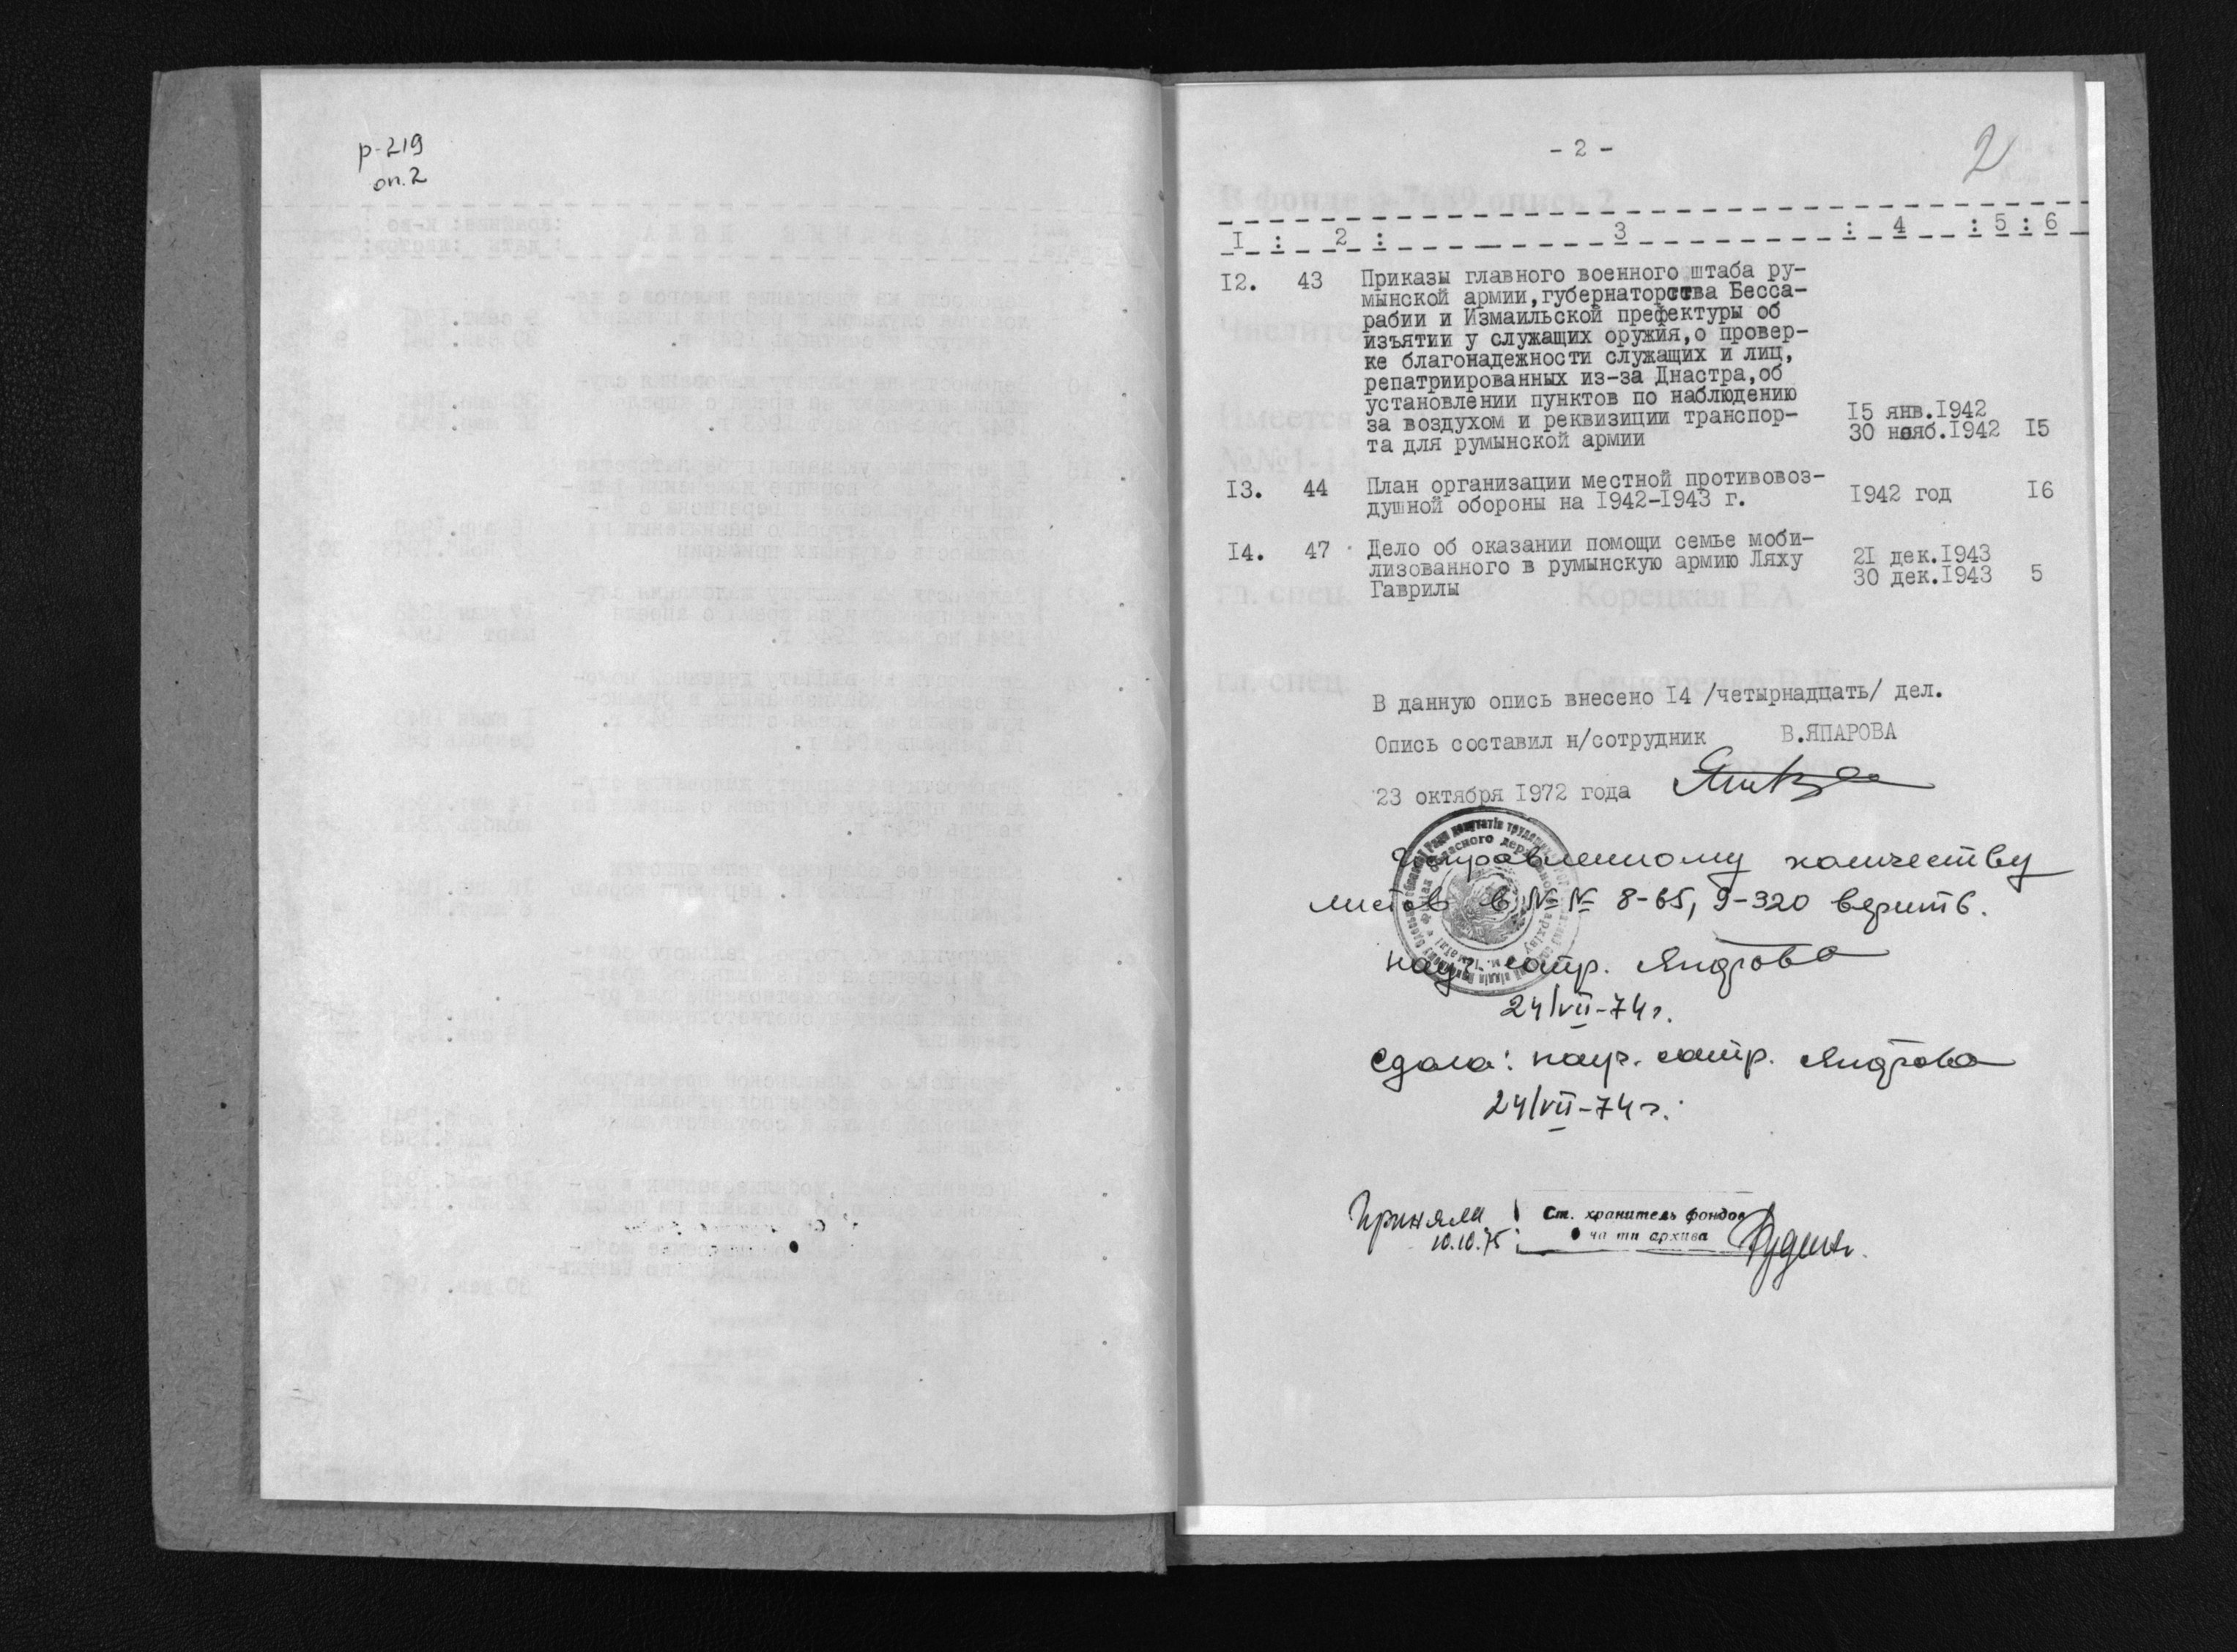 р-219
оп.2
- 2 -
2
I : 2 : 3 : 4 : 5 : 6
I2. 43 Приказы главного военного штаба ру-
мынской армии,губернаторства Бесса-
рабии и Измаильской префектуры об
изъятии у служащих оружия,о провер-
ке благонадежности служащих и лиц,
репатриированных из-за Днастра,об
установлении пунктов по наблюдению
за воздухом и реквизиции транспор- I5 янв.I942
та для румынской армии 30 нояб.I942 I5
I3. 44 План организации местной противовоз-
душной обороны на I942-I943 г. I942 год I6
I4. 47 Дело об оказании помощи семье моби-
лизованного в румынскую армию Ляху 2I дек.I943
Гаврилы 30 дек.I943 5
В данную опись внесено I4 /четырнадцать/ дел.
Опись составил н/сотрудник В.ЯПАРОВА
23 октября I972 года
Исправленному количеству
листов в №№ 8-65, 9-320 верить.
науч. сотр.
24/VII-74г.
Сдала: науч. сотр.
24/VII-74г.
Приняла Ст. хранитель фондов
10.10.75 архива